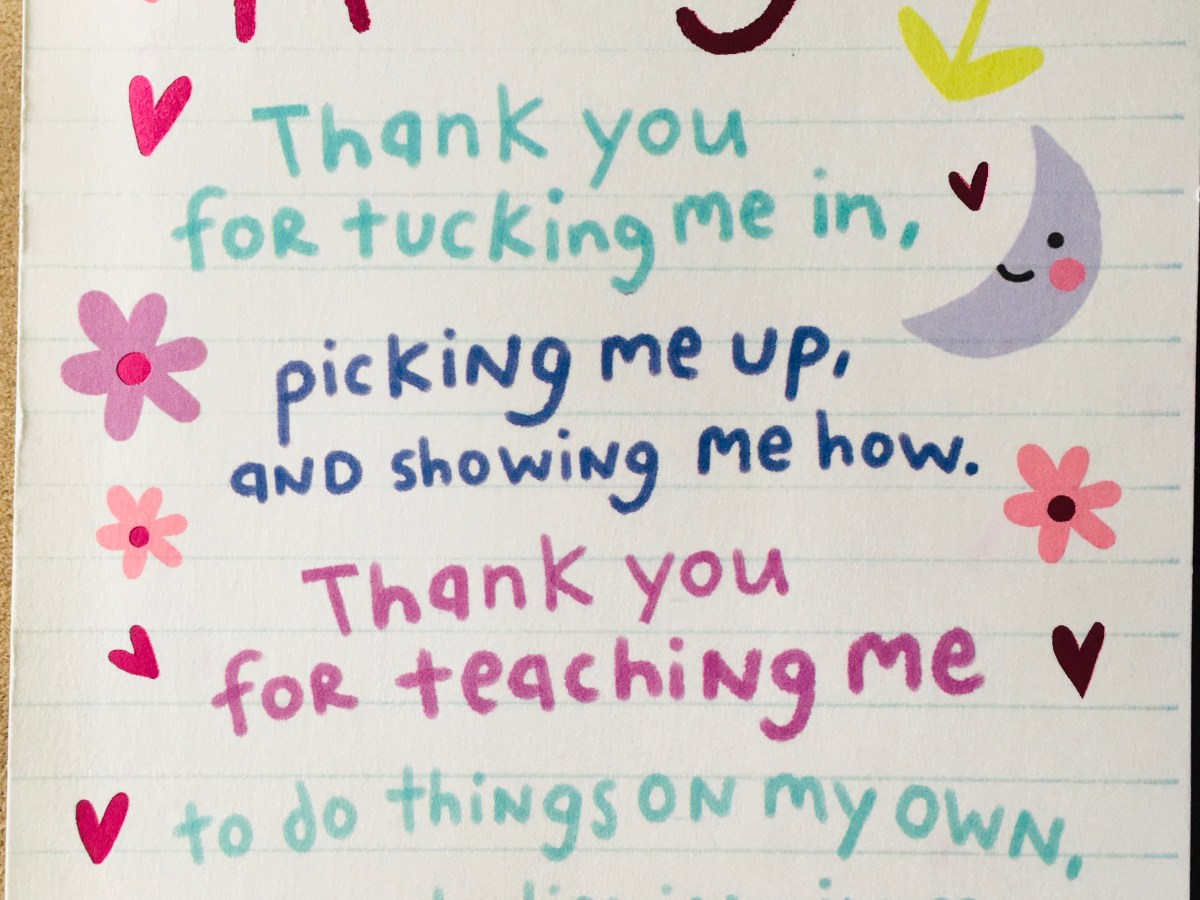 Thank you
for tucking me in,
picking me up,
and showing me how.
Thank you
for teaching me
to do things on my own,